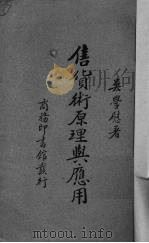 學慰著
售貨術原理與應用
商務印書館發行